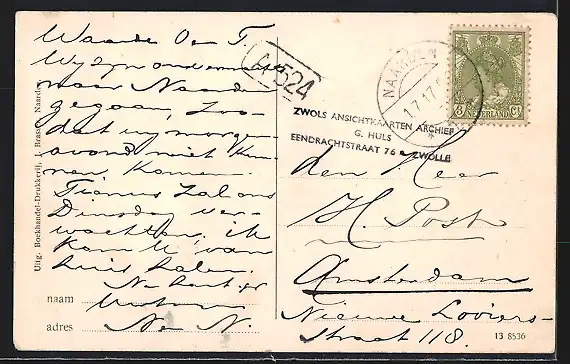 Waarde O en T.
Wij zijn onvermoeid
naar Naarden
gegaan, zoo-
dat wij morgen-
avond niet kun-
nen komen.
zal ons
Dinsdag ver-
wachten, ik
kom U van
huis halen.
Na hart. gr
naam
adres
Uitg. Boekhandel-Drukkerij, J. Brasser, Naarden
A 524
NAARDEN
1.7.17
NEDERLAND
3 ct
ZWOLS ANSICHTKAARTEN ARCHIEF
G. HULS
EENDRACHTSTRAAT 76 ZWOLLE
den Heer
H. Post
Amsterdam
Nieuwe Looiers-
straat 118.
13 8536